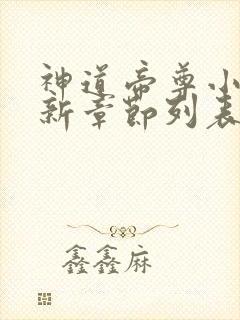 神道帝尊小
新章節列表
鑫鑫麻